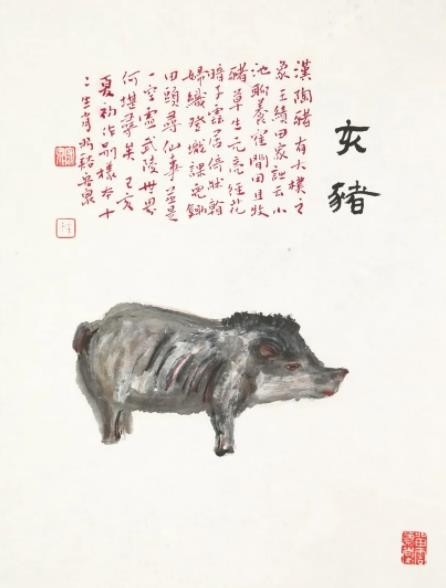 亥豬
漢陶豬有大樸之
象王績田家詩云小
池聊養鶴閒田且牧
豬草生元亮徑花
暗子雲居倚牀看
婦織登壠課兒鋤
回頭尋仙事並是
一空虛武陵世界
何堪羨矣己亥
夏初作別樣本十
二生肖